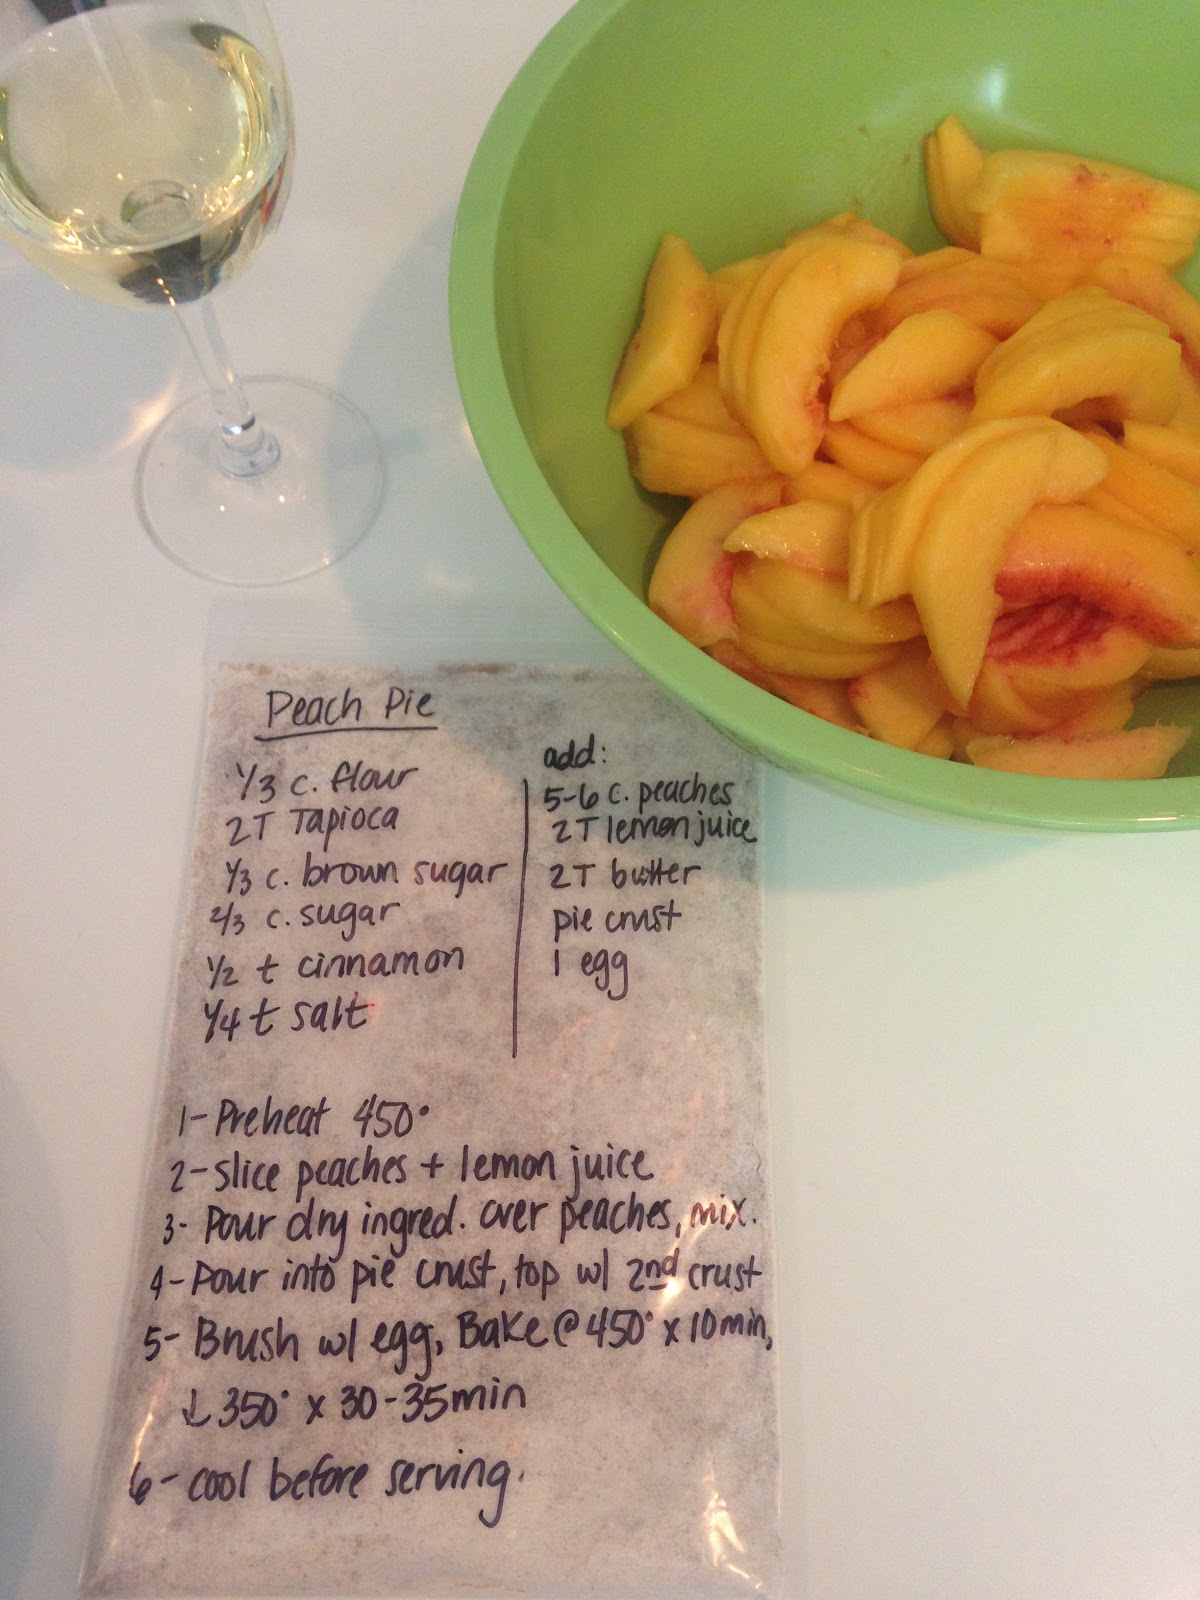 Peach Pie
1/3 c. flour
2T Tapioca
1/3 c. brown sugar
2/3 c. sugar
1/2 t cinnamon
1/4 t salt
add:
5-6 c. peaches
2T lemon juice
2T butter
pie crust
1 egg
1- Preheat 450°
2- Slice peaches + lemon juice
3- Pour dry ingred. over peaches, mix.
4- Pour into pie crust, top w/ 2nd crust
5- Brush w/ egg, Bake @ 450° x 10min,
↓ 350° x 30-35min
6- cool before serving.